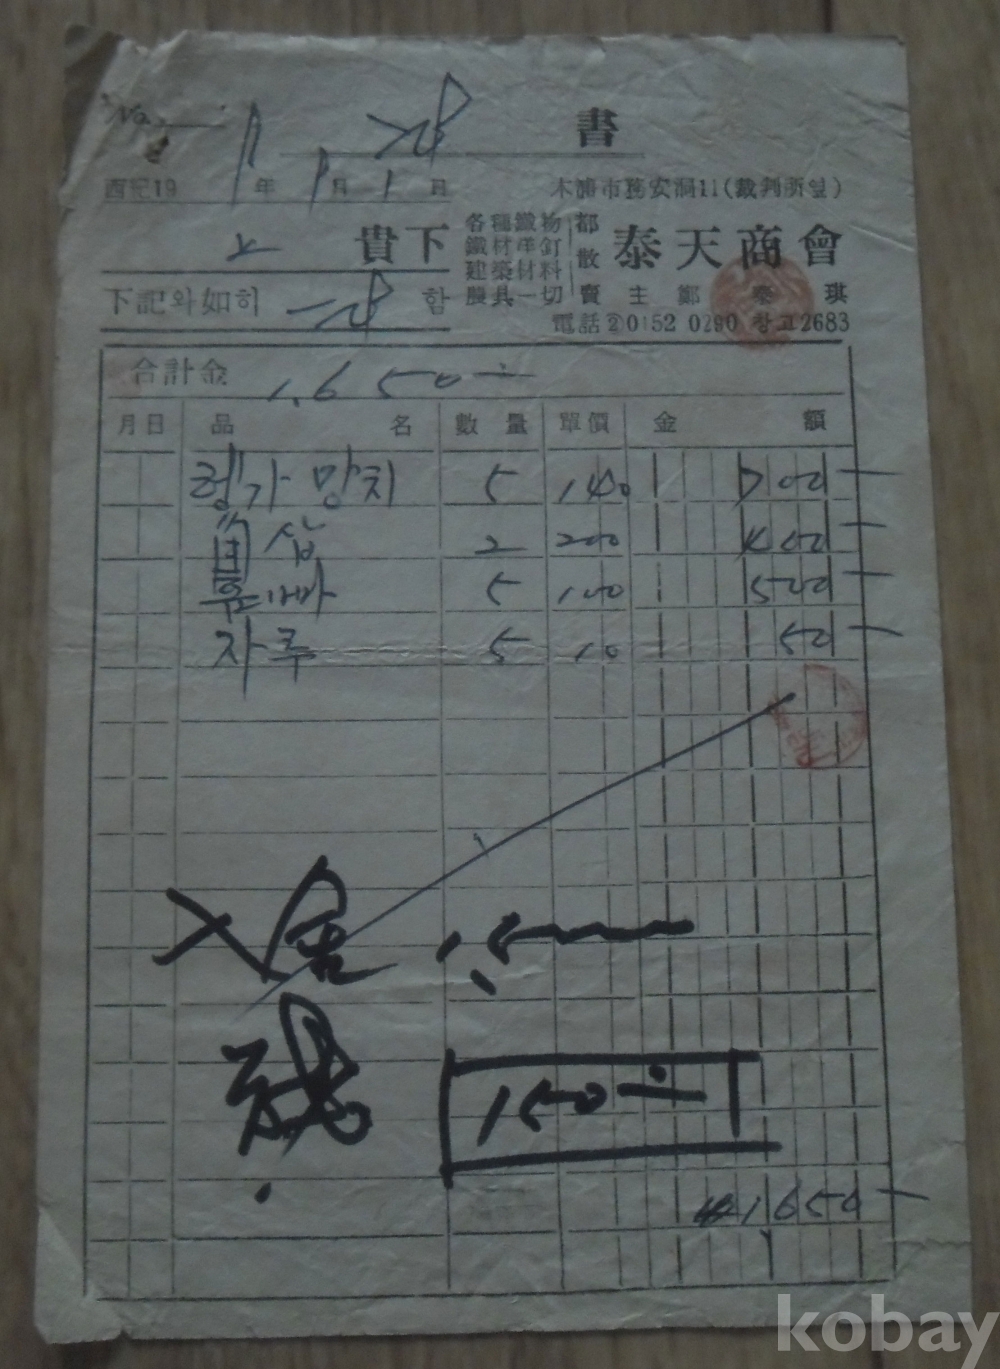 No.
書
西紀19 年 月 1 日
木浦市務安洞11(裁判所옆)
貴下
各種鐵物
鐵材洋釘
建築材料
農具一切
都散賣
泰天商會
主 鄭 泰 琪
電話②0152 0290 창고2683
下記와如히 함
合計金 1,650
月日 品名 數量 單價 金額
망치 5 140 700
삽 2 200 400
5 100 500
자루 5 10 50
入金 1,5
残 150
1650
kobay